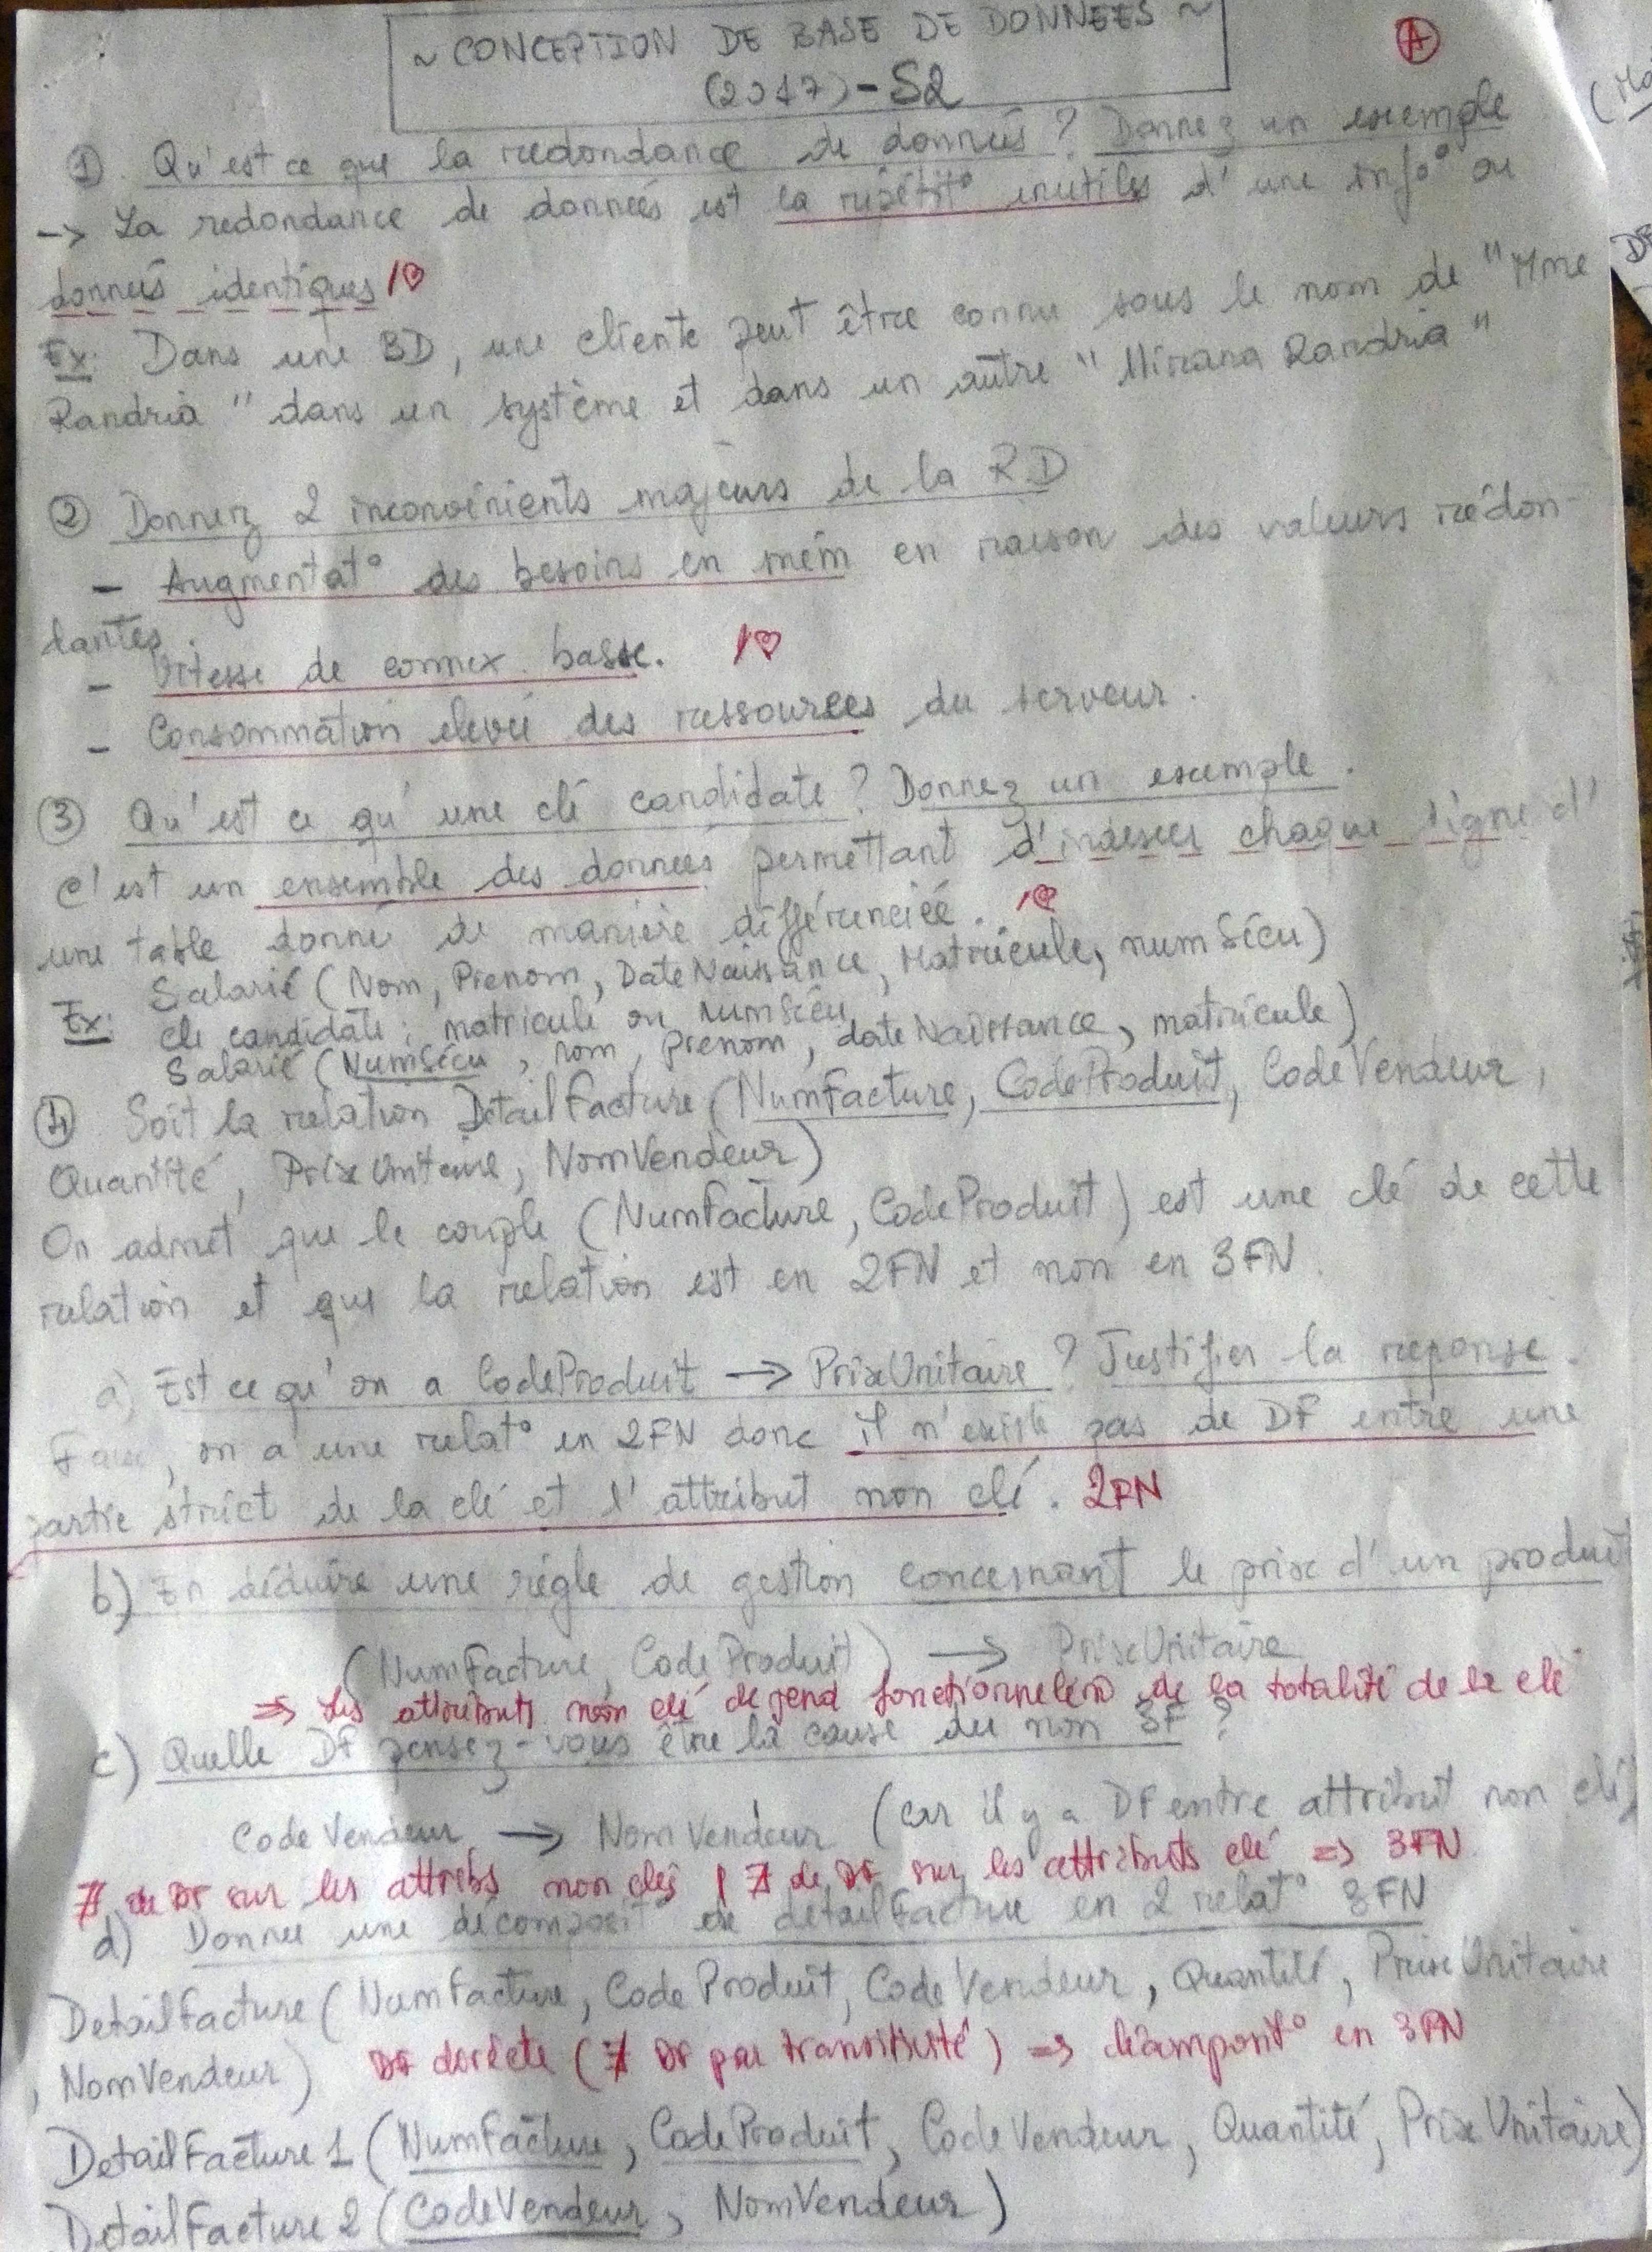 ~ CONCEPTION DE BASE DE DONNEES ~
(2017) - S2
A
① Qu'est ce que la redondance de donnés ? Donnez un exemple
-> La redondance de données est la répétit° inutiles d'une info° ou
donnés identiques 1♡
Ex: Dans une BD, une cliente peut être connu sous le nom de "Mme
Randria" dans un système et dans un autre "Mirana Randria"
② Donnez 2 inconvénients majeurs de la R.D
- Augmentat° des besoins en mém en raison des valeurs rédon-
dantes.
- Vitesse de connex. basse. 1♡
- Consommation elevée des ressources du serveur.
③ Qu'est ce qu'une clé candidate ? Donnez un exemple.
C'est un ensemble des données permettant d'indexer chaque ligne d'
une table donné de manière différenciée. 1♡
Ex: Salarié (Nom, Prenom, DateNaissance, Matricule, numSécu)
cle candidate : matricule ou numSécu
Salarié (NumSécu, nom, prenom, dateNaissance, matricule)
④ Soit la relation DetailFacture (NumFacture, CodeProduit, CodeVendeur,
Quantité, PrixUnitaire, NomVendeur)
On admet que le couple (NumFacture, CodeProduit) est une clé de cette
relation et que la relation est en 2FN et non en 3FN.
a) Est ce qu'on a CodeProduit -> PrixUnitaire ? Justifier la reponse.
Faux, on a une relat° en 2FN donc il n'existe pas de DF entre une
partie strict de la clé et l'attribut non clé. 2FN
b) En déduire une règle de gestion concernant le prix d'un produit
(NumFacture, CodeProduit) -> PrixUnitaire
=> Les attributs non clé depend fonctionnelem de la totalité de la clé
c) Quelle DF pensez-vous être la cause du non 3F ?
CodeVendeur -> NomVendeur (car il y a DF entre attribut non clé)
∄ de DF sur les attribs non clés / ∄ de DF sur les attributs clé => 3FN
d) Donner une décomposit° de detailFacture en 2 relat° 3FN
DetailFacture (NumFacture, CodeProduit, CodeVendeur, Quantité, PrixUnitaire
, NomVendeur) DF directe (∄ DF par transitivité) => décomposit° en 3FN
DetailFacture 1 (NumFacture, CodeProduit, CodeVendeur, Quantité, PrixUnitaire)
DetailFacture 2 (CodeVendeur, NomVendeur)